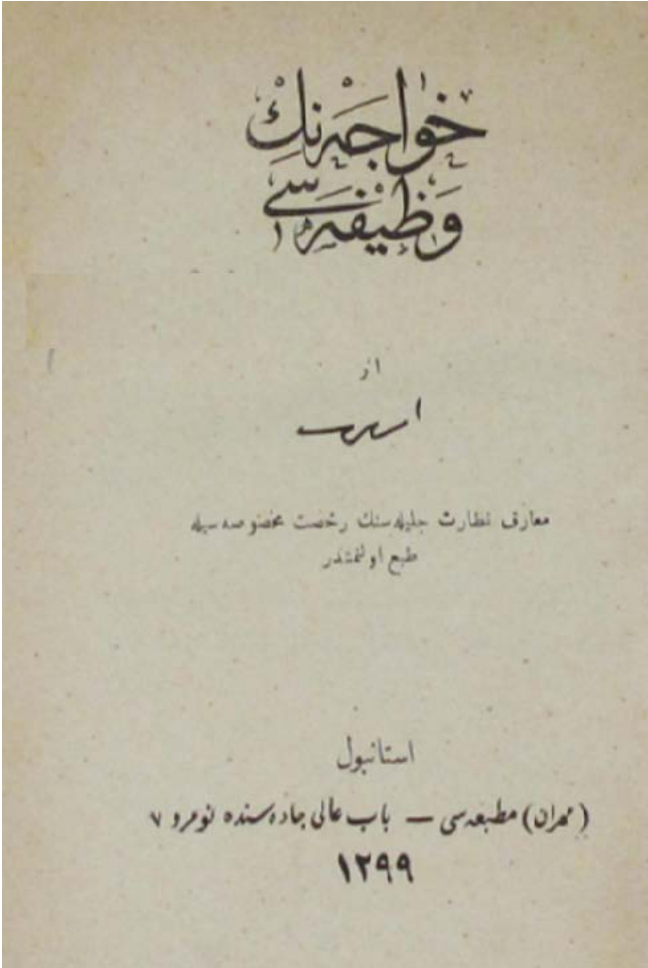 خواجه‌نك
وظیفه‌سی
از
معارف نظارت جلیله‌سنك رخصت مخصوصه‌سیله
طبع اولنمشدر
استانبول
(مهران) مطبعه‌سی — باب عالی جاده‌سنده نومرو ۷
۱۲۹۹